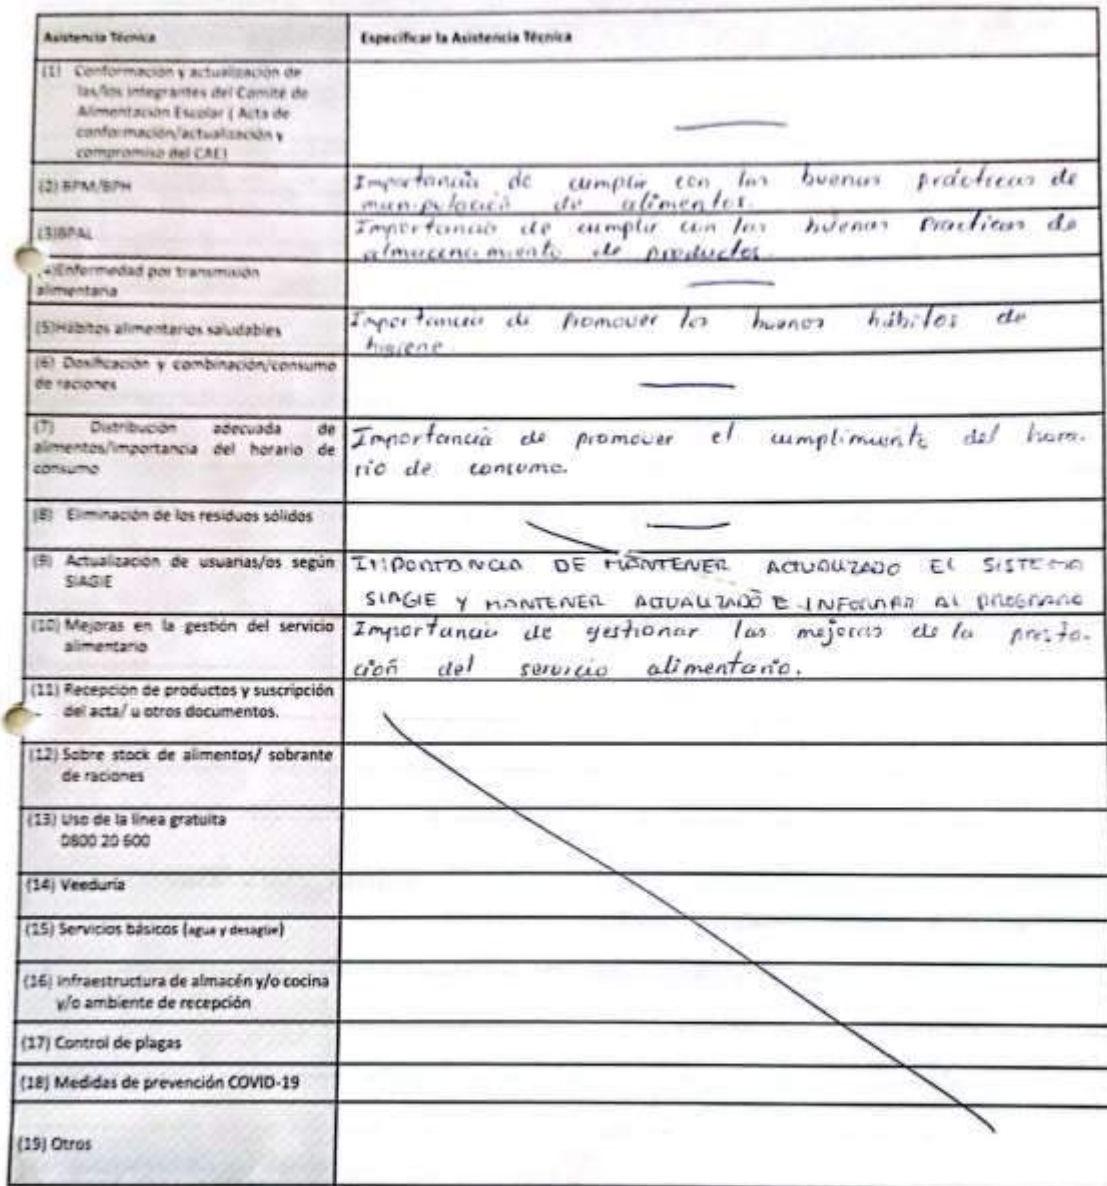 Asistencia Técnica
Especificar la Asistencia Técnica
(1) Conformación y actualización de
las/los integrantes del Comité de
Alimentación Escolar ( Acta de
conformación/actualización y
compromiso del CAE)
(2) BPM/BPH
Importancia de cumplir con las buenas prácticas de
manipulación de alimentos.
(3)BPAL
Importancia de cumplir con las buenas Practicas de
almacenamiento de productos.
(4)Enfermedad por transmisión
alimentaria
(5)Hábitos alimentarios saludables
Importancia de Promover los buenos hábitos de
higiene.
(6) Dosificación y combinación/consumo
de raciones
(7) Distribución adecuada de
alimentos/importancia del horario de
consumo
Importancia de promover el cumplimiento del hora-
rio de consumo.
(8) Eliminación de los residuos sólidos
(9) Actualización de usuarias/os según
SIAGIE
IMPORTANCIA DE MANTENER ACTUALIZADO EL SISTEMA
SIAGIE Y MANTENER ACTUALIZADO E INFORMAR AL PROGRAMA
(10) Mejoras en la gestión del servicio
alimentario
Importancia de gestionar las mejoras de la presta-
ción del servicio alimentario.
(11) Recepción de productos y suscripción
del acta/ u otros documentos.
(12) Sobre stock de alimentos/ sobrante
de raciones
(13) Uso de la línea gratuita
0800 20 600
(14) Veeduría
(15) Servicios básicos (agua y desagüe)
(16) Infraestructura de almacén y/o cocina
y/o ambiente de recepción
(17) Control de plagas
(18) Medidas de prevención COVID-19
(19) Otros